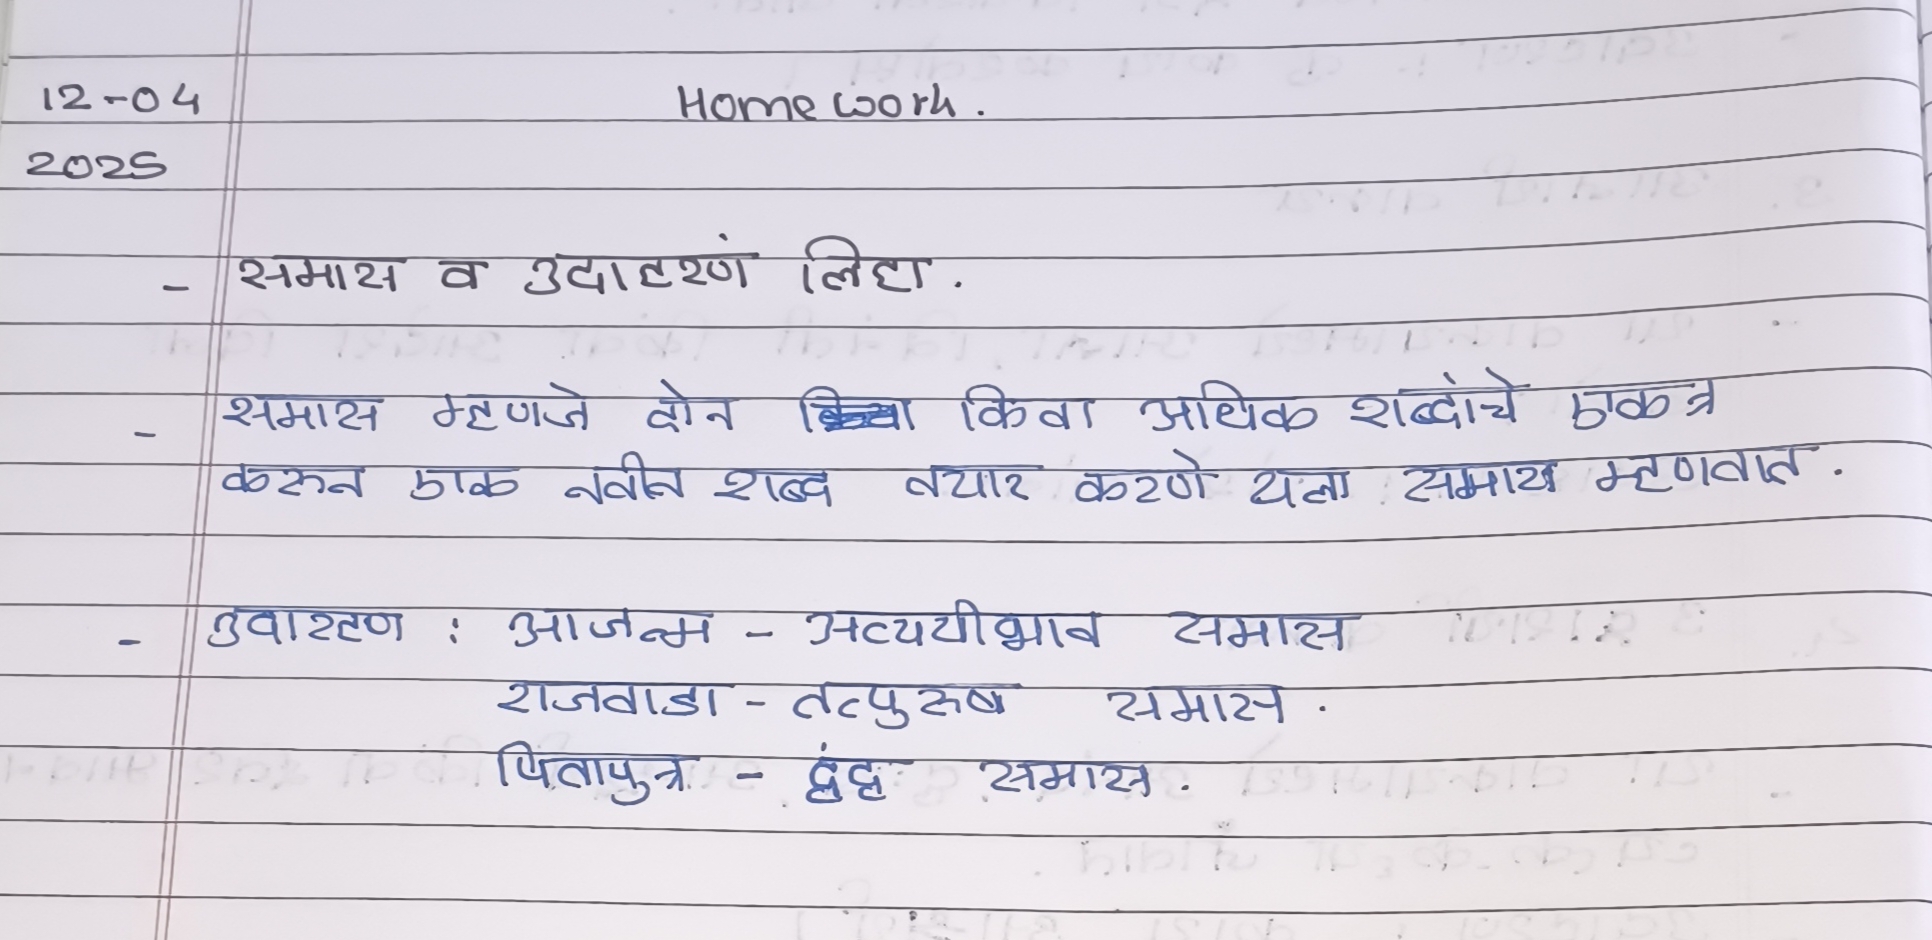 12-04
Homework.
2025
- समास व उदाहरणं लिहा.
- समास म्हणजे दोन किवा अधिक शब्दांचे एकत्र
करुन एक नवीन शब्द तयार करणे यला समास म्हणतात.
- उदारहण : आजन्म - अव्ययीभाव समास
राजवाडा - तत्पुरुष समास.
पितापुत्र - द्वंद्व समास.